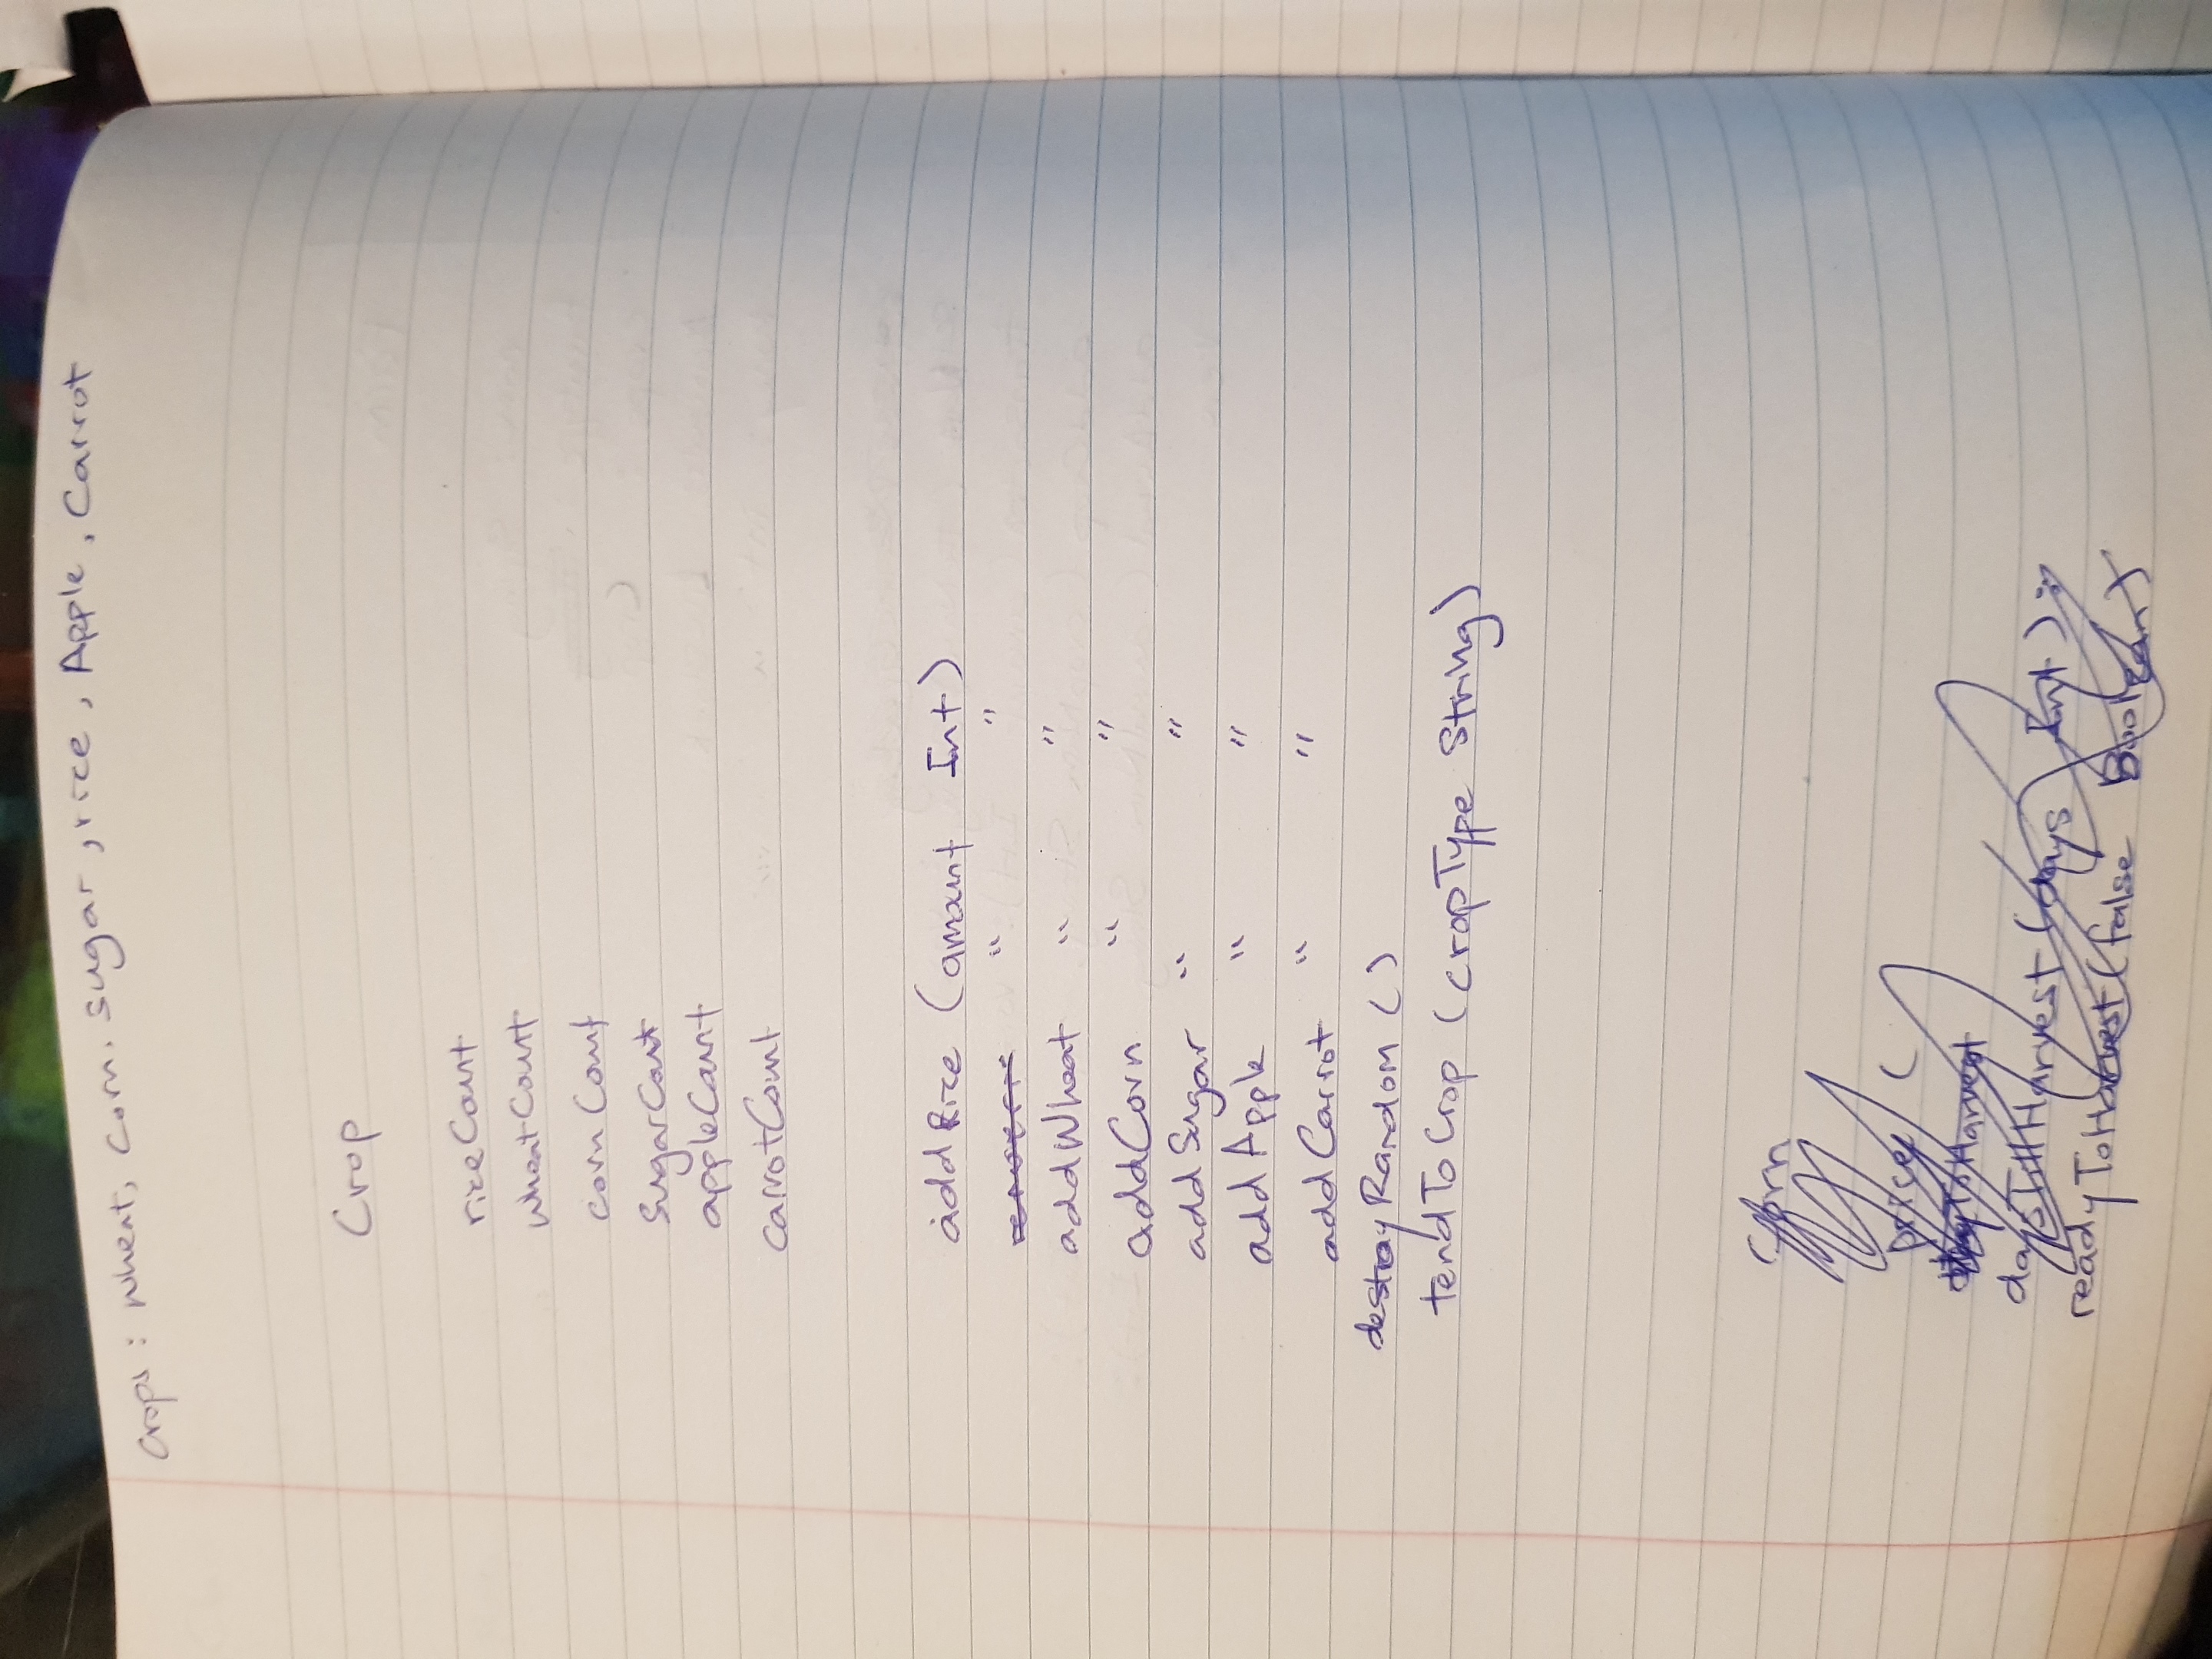 Crops: Wheat, Corn. Sugar, rice, Apple, Carrot
Crop
riceCount
wheatCount
cornCount
SugarCount
appleCount
carrotCount
addRice (amount Int)
" "
addWheat " "
addCorn " "
addSugar " "
addApple " "
addCarrot " "
destroyRandom ()
tendToCrop (cropType String)
Corn
price (
ToHarvest
daysTillHarvest (days Int):
readyToHarvest (false Boolean)